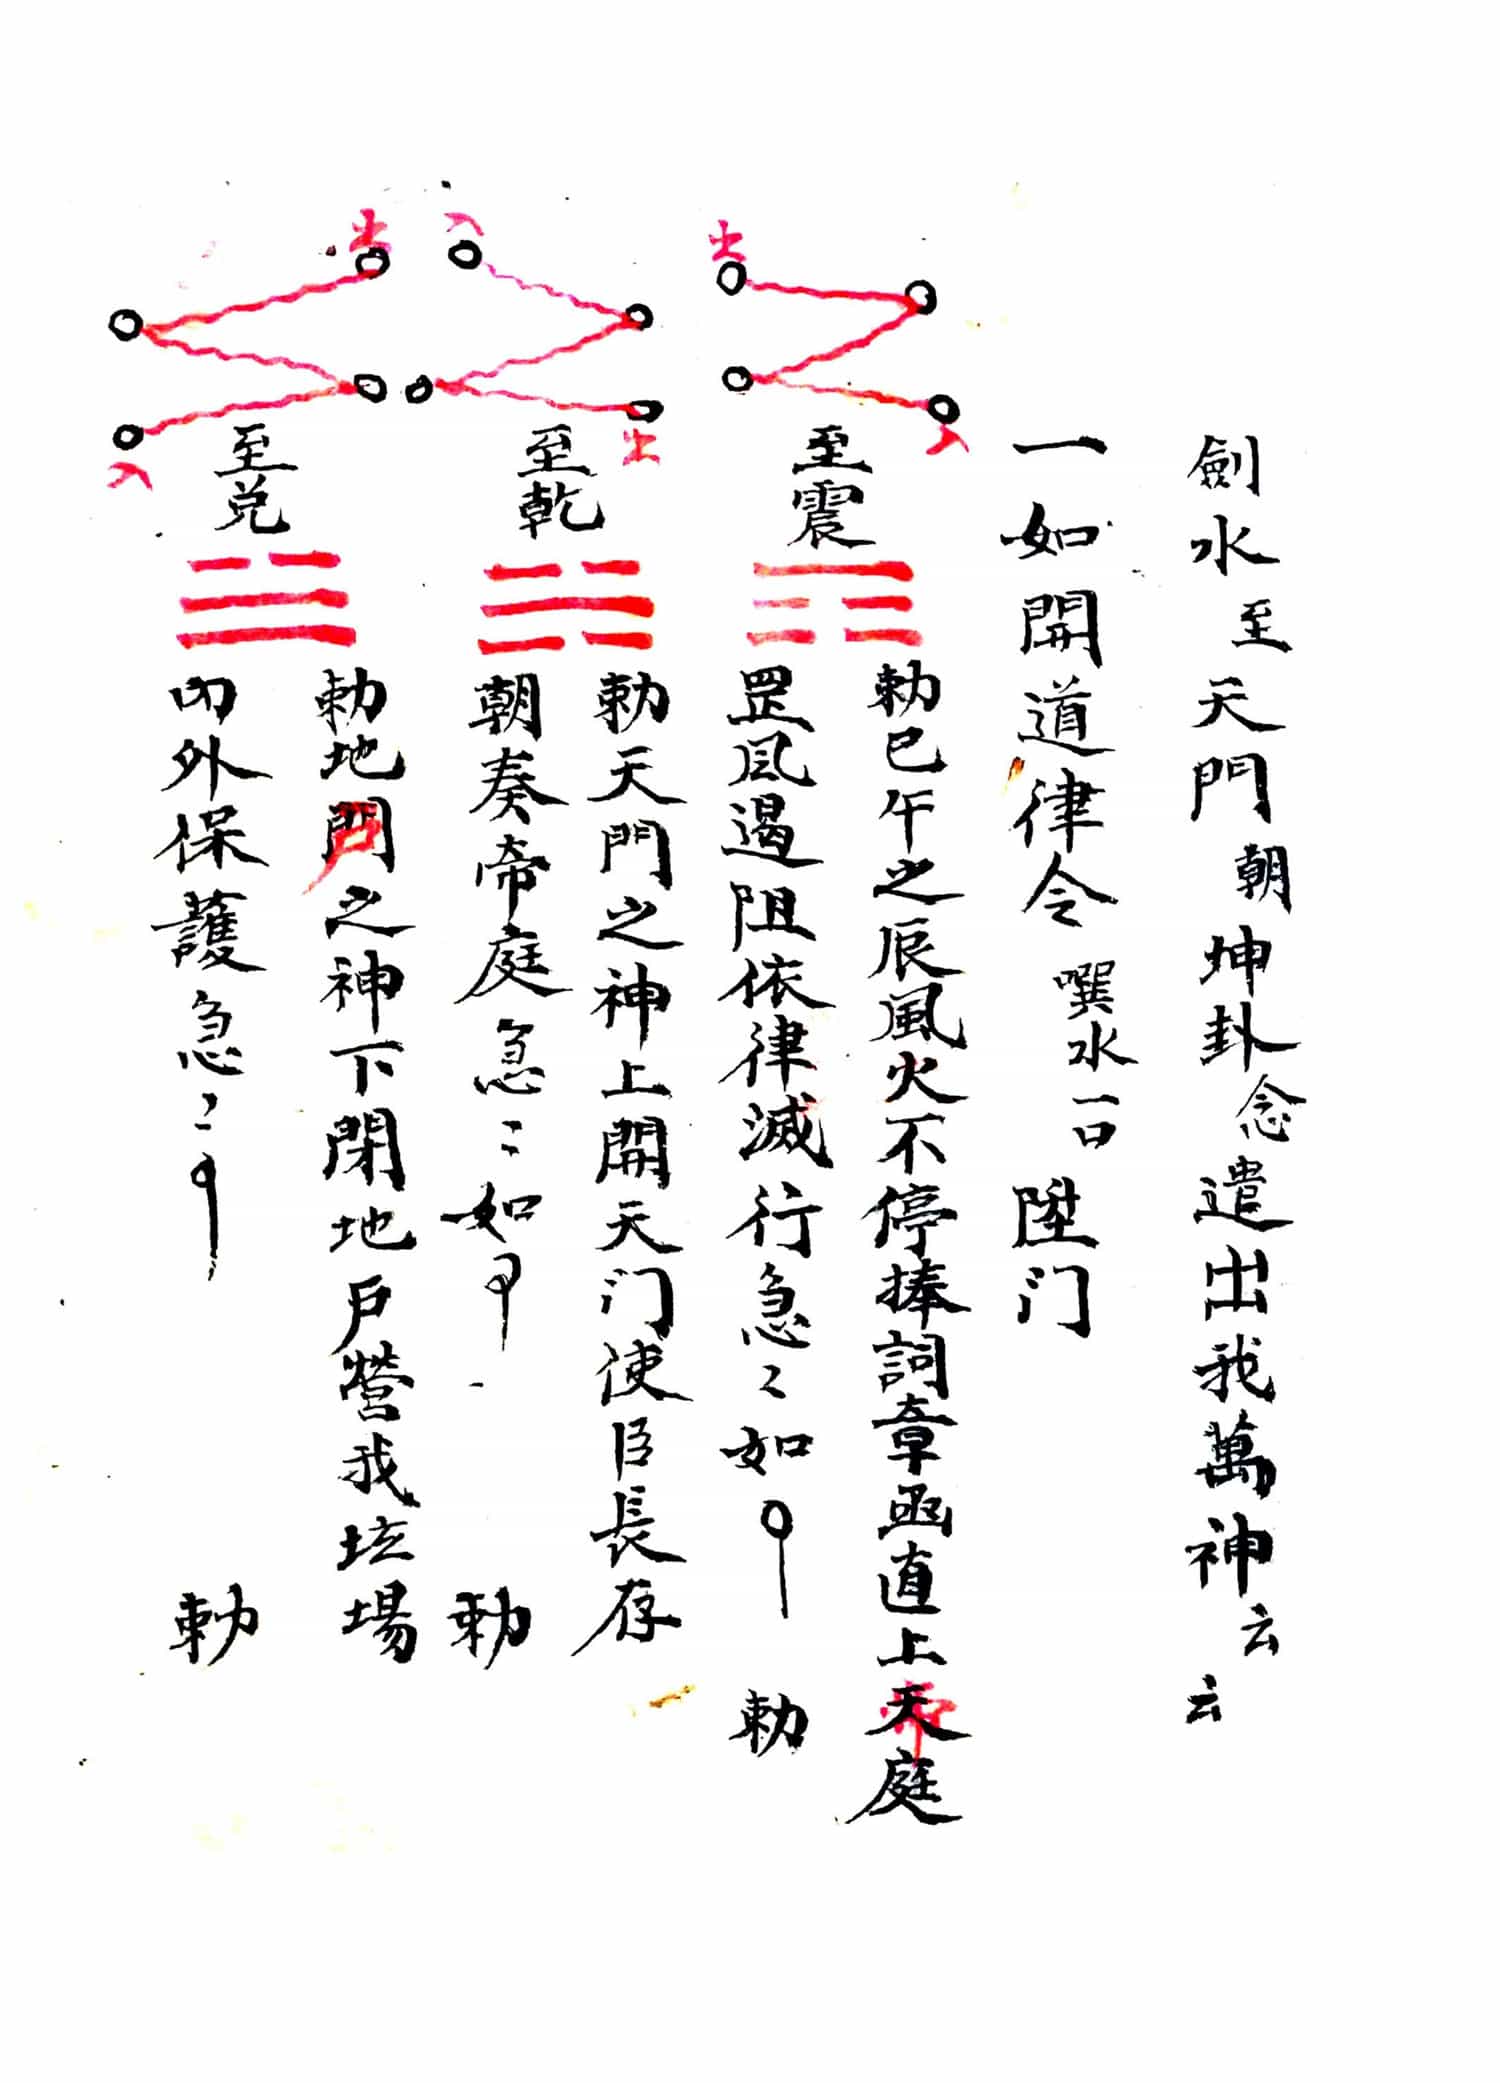 劍水至天門朝坤卦念遣出我萬神云云
一如開道律令 噀水一口 陞门
出
入
至震
勅巳午之辰風火不停捧詞章函直上帝庭
罡风遏阻依律滅行急〻如 勅
入
出
至乾
勅天門之神上開天门使臣長存
朝奏帝庭急〻如 勅
出
入
至兑
勅地之神下閉地户營我坛場
内外保護急〻 勅